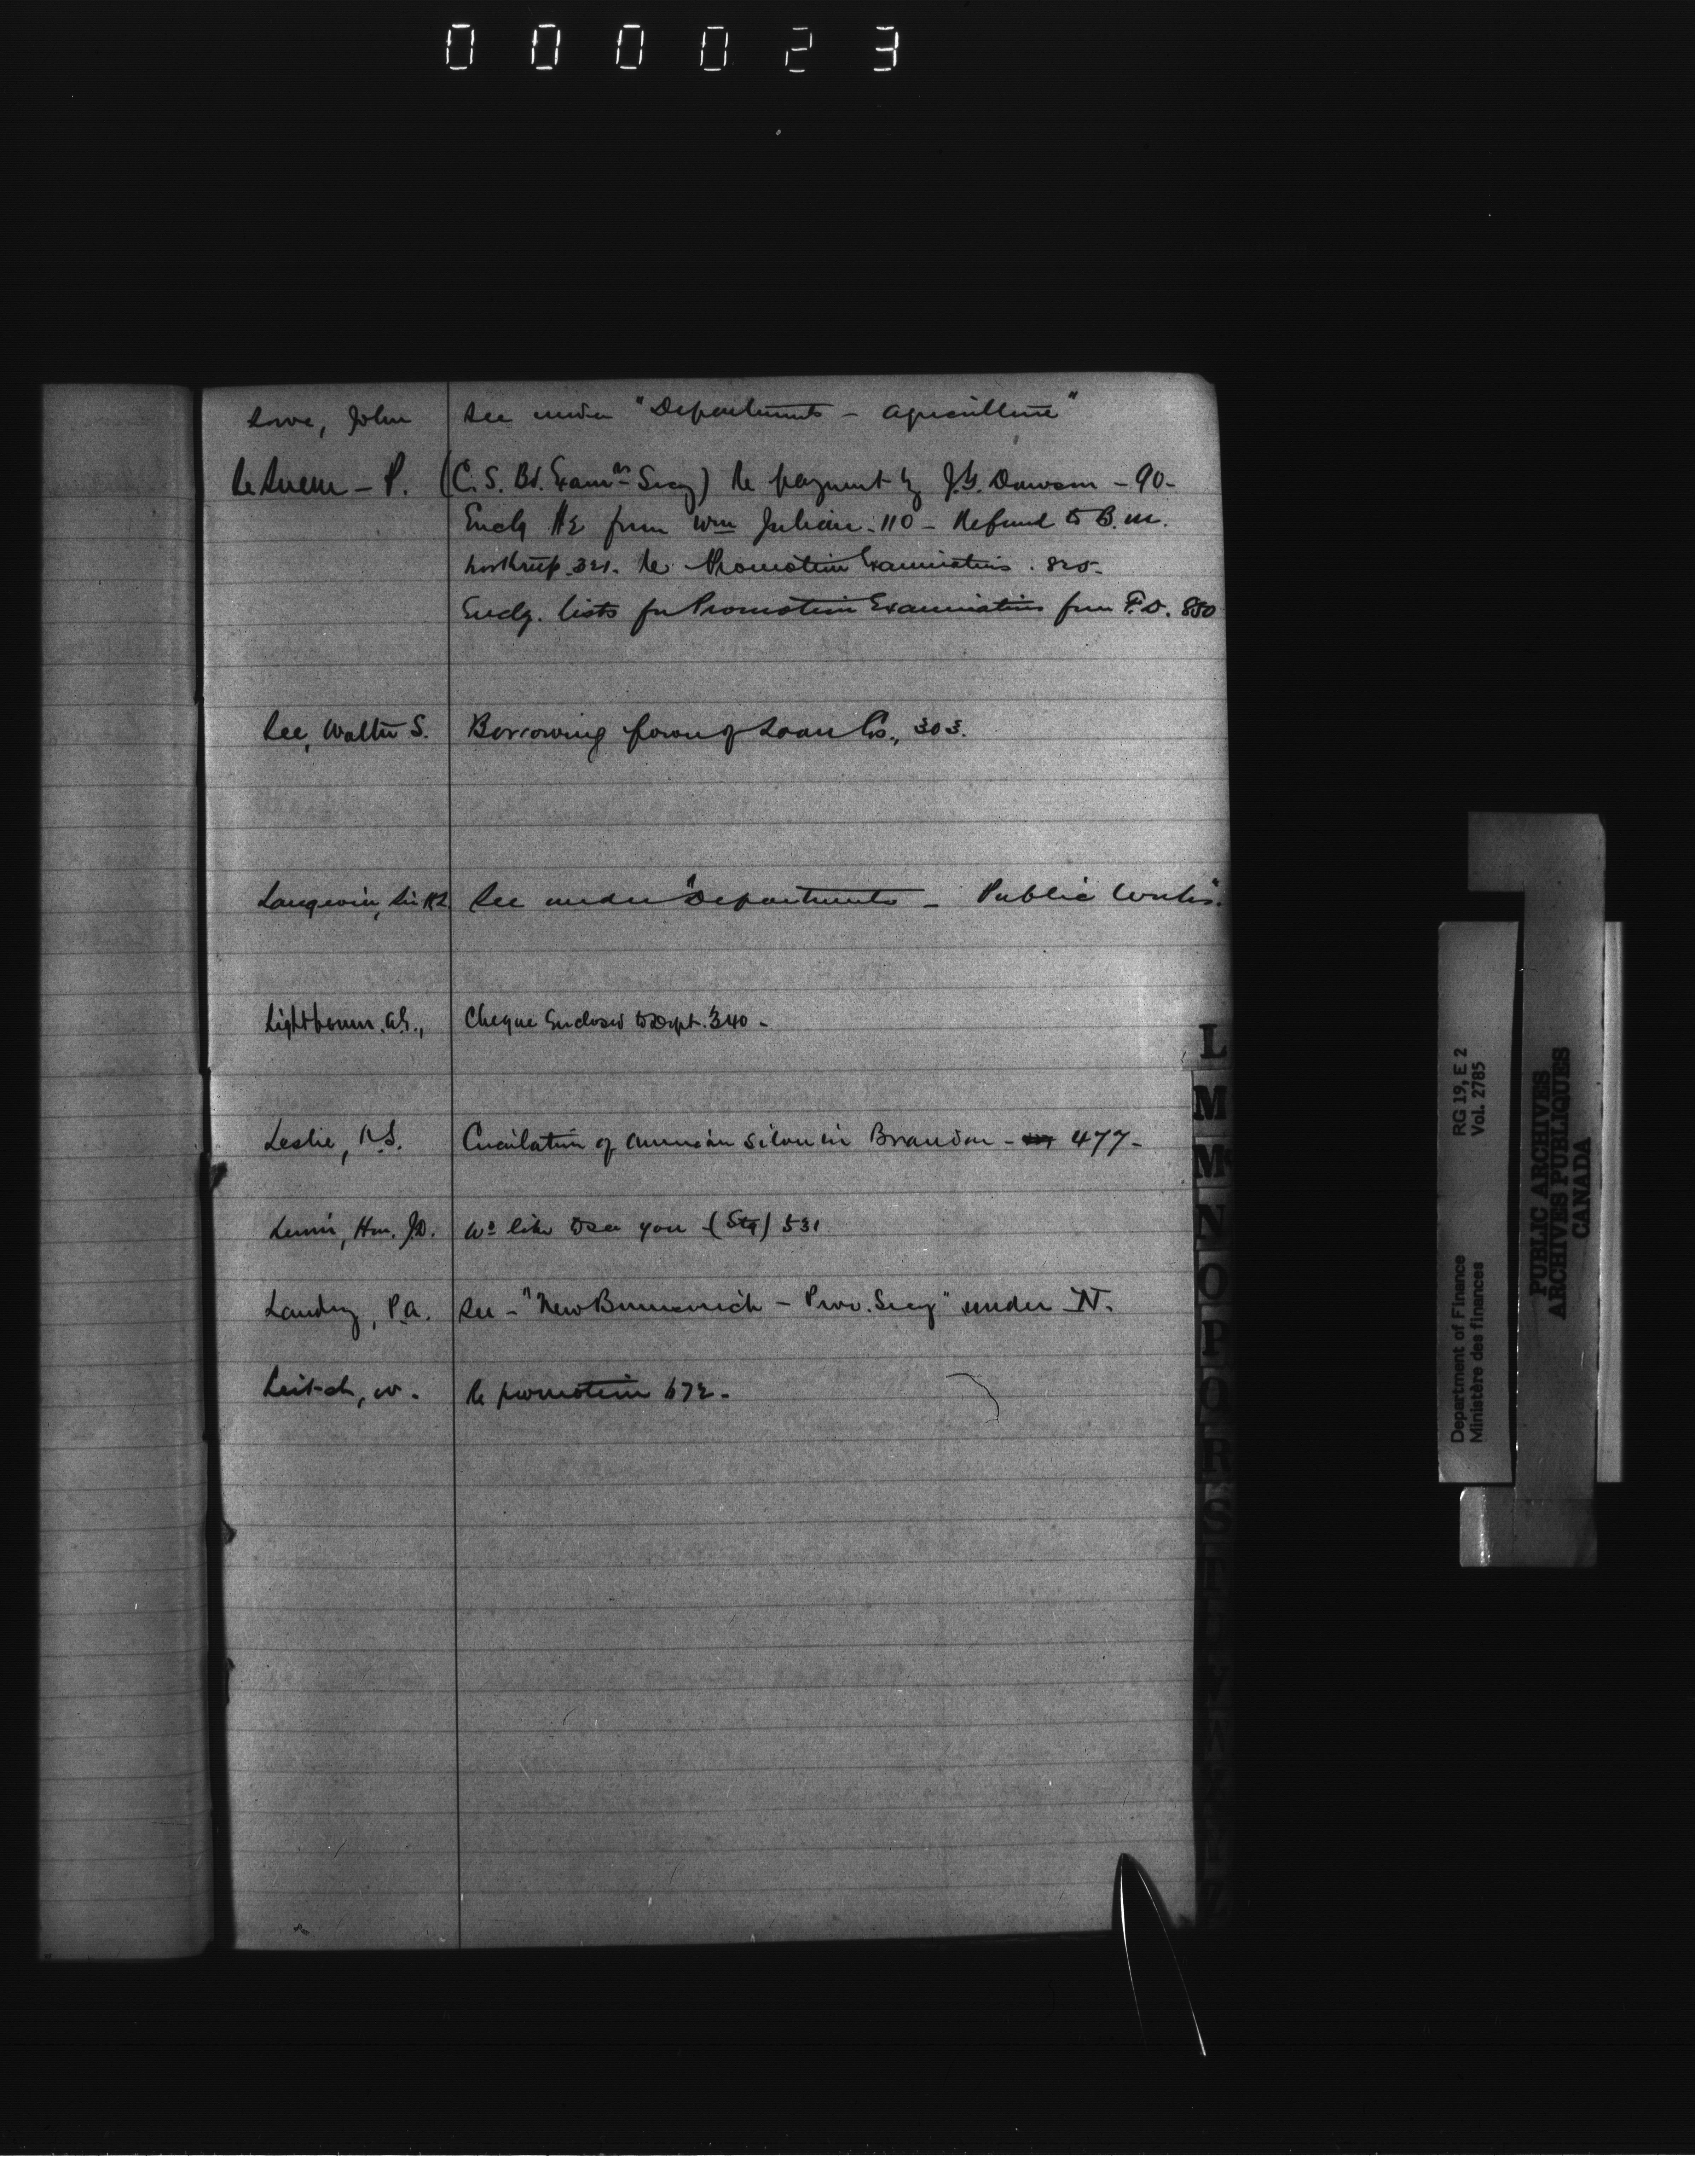 000023
Lowe, John See under "Departments - Agriculture"
Le Sueur - P. (C. S. Bd. Examrs - Secy) Re payment by J.G. Dawson - 90 -
Encg $2 from Wm Julian - 110 - Refund to B. M.
Northrup 321. Re Promotion Examinations . 825 -
Encdg. lists for Promotion Examinations from F.D. 850
Lee, Walter S. Borrowing power of Loan Cos., 303.
Langevin, Sir H.L. See under "Departments - Public Works".
Lightbourn. A.E., Cheque Enclosed to Dept. 340 -
Leslie, R.S. Circulation of American Silver in Brandon - 477 -
Lewin, Hon. J.D. Wd like to see you (Stg) 531
Landry, P.A. See - "New Brunswick - Prov. Secy" under N.
Leitch, W. Re promotion 672 -
L
M
Mc
N
O
P
Q
R
S
T
RG 19, E 2
Vol. 2785
Department of Finance
Ministère des finances
PUBLIC ARCHIVES
ARCHIVES PUBLIQUES
CANADA